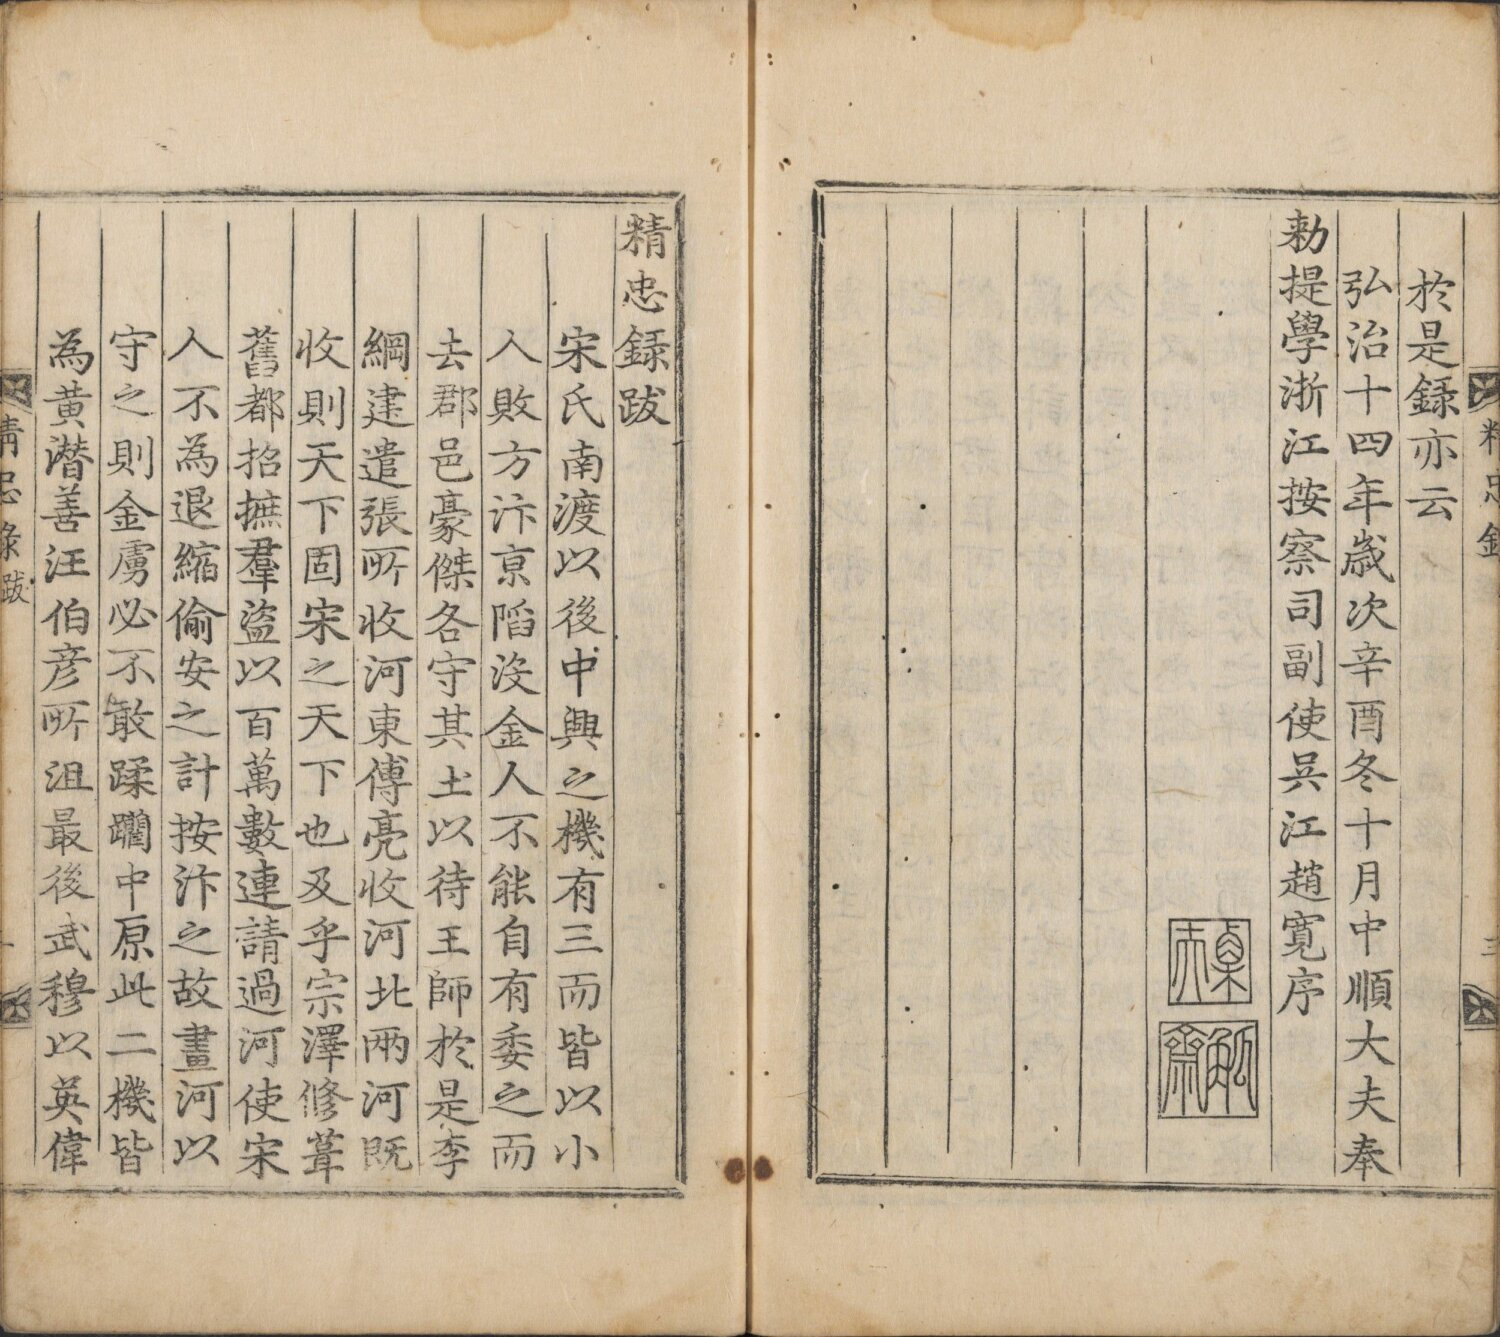 於是録亦云
弘治十四年歳次辛酉冬十月中順大夫奉
勑提學浙江按察司副使吳江趙寛序
精忠録
三
精忠録跋
宋氏南渡以後中興之機有三而皆以小
人敗方汴京陷沒金人不能自有委之而
去郡邑豪傑各守其土以待王師於是李
綱建遣張所收河東傅亮收河北兩河既
收則天下固宋之天下也及乎宗澤修葺
舊都招撫羣盜以百萬數連請過河使宋
人不為退縮偷安之計按汴之故畫河以
守之則金虜必不敢蹂躪中原此二機皆
為黄潛善汪伯彦所沮最後武穆以英偉
精忠錄跋